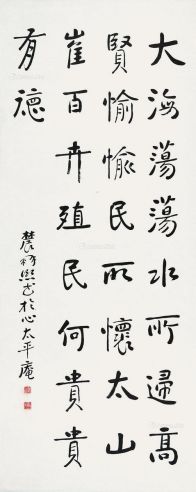 大海蕩蕩水所歸高
賢愉愉民所懷太山
崔百卉殖民何貴貴
有德
農祥熙書於心太平庵